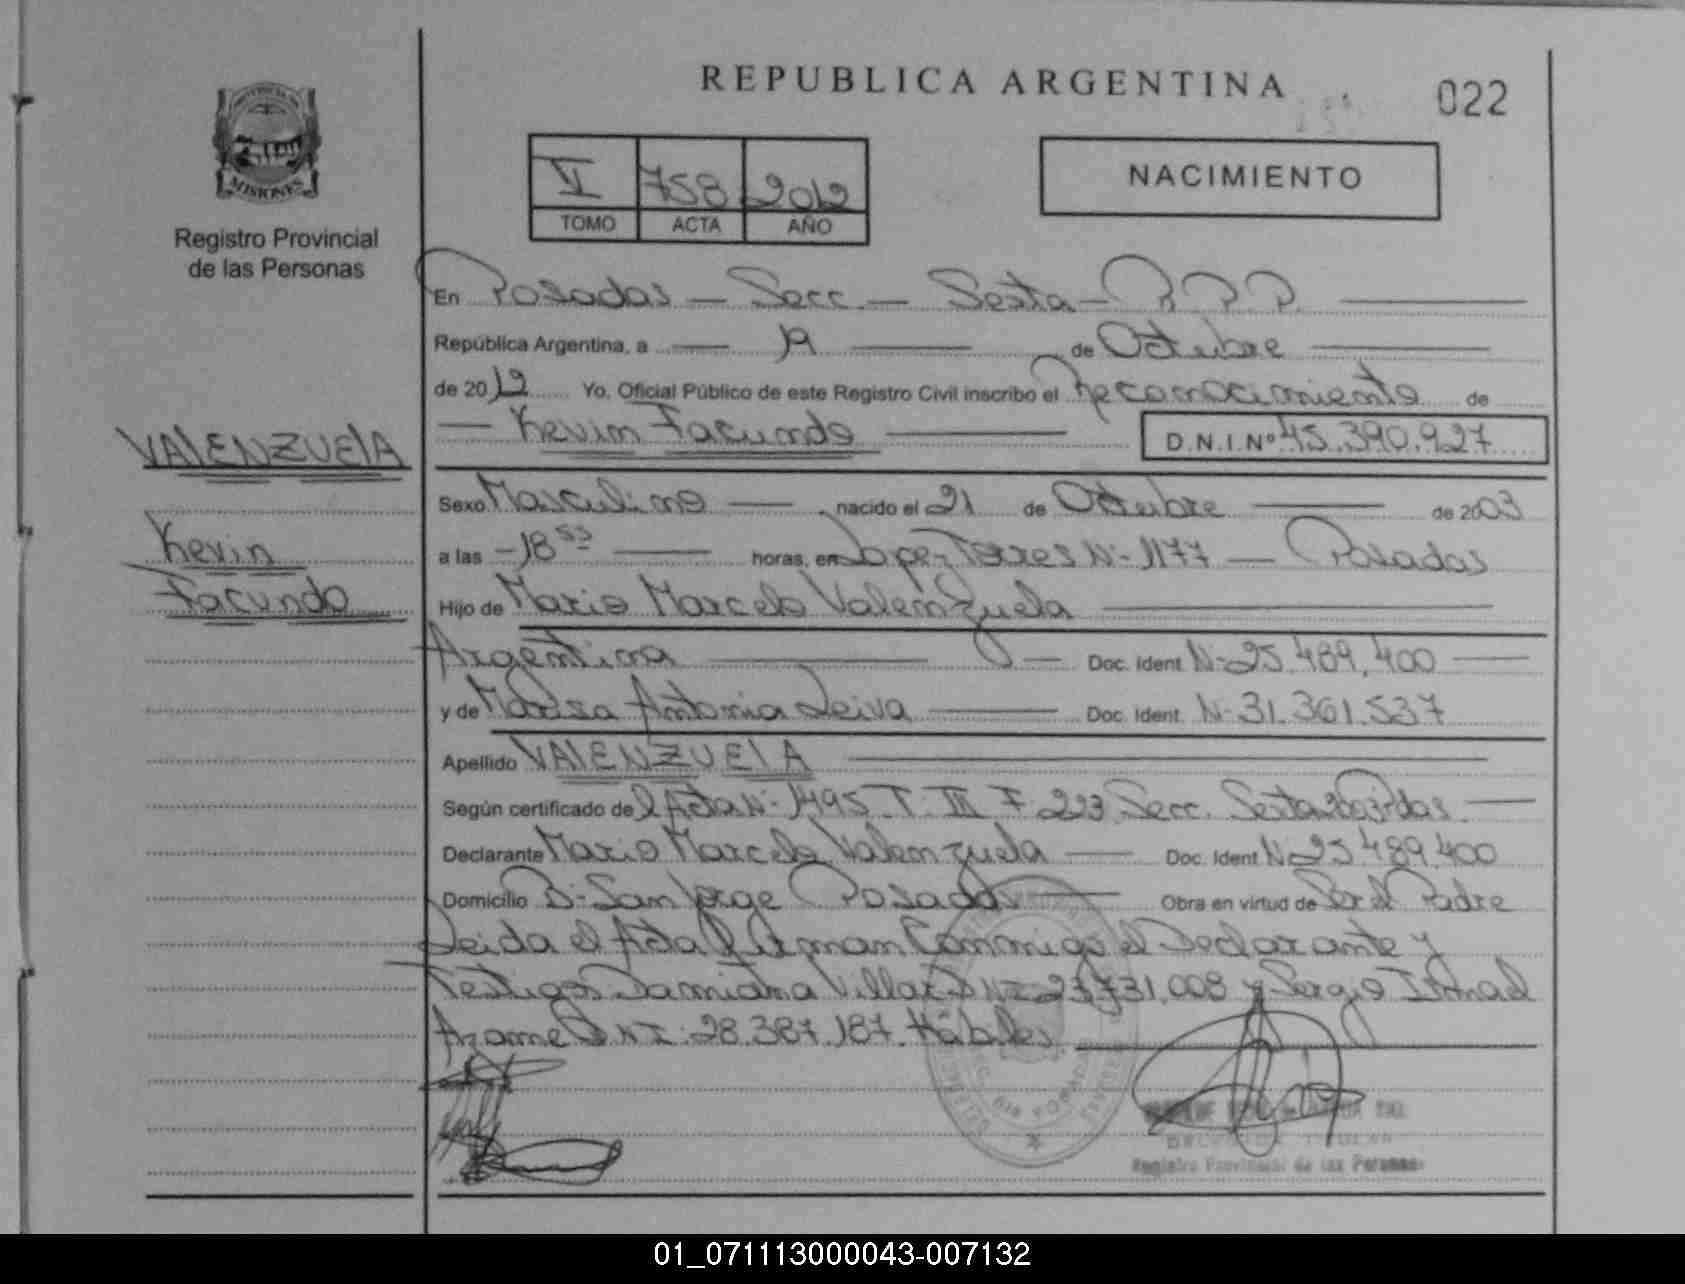 REPUBLICA ARGENTINA
022
VI 758 2012
TOMO ACTA AÑO
NACIMIENTO
MISIONES
Registro Provincial
de las Personas
En Posadas - Secc - Sexta - R.P.P.
República Argentina, a 19 de Octubre
de 2012 Yo, Oficial Público de este Registro Civil inscribo el Reconocimiento de
Kevin Facundo D.N.I.Nº 45.390.927
VALENZUELA
Kevin
Facundo
Sexo Masculino nacido el 21 de Octubre de 2003
a las 18 53 horas, en Lopez Torres Nº 1177 - Posadas
Hijo de Mario Marcelo Valenzuela
Argentina Doc. Ident. Nº 25.489.400
y de Marisa Antonia Leiva Doc. Ident. Nº 31.361.537
Apellido VALENZUELA
Según certificado del Acta Nº 1495 T. III F. 223 Secc. Sexta
Declarante Mario Marcelo Valenzuela Doc. Ident. Nº 25.489.400
Domicilio Bº San Jorge Posadas Obra en virtud de Ser el Padre
Leida el Acta Firman Conmigo el Declarante y
Testigos Damiana Villar DNI 27.731.008 y Sergio Ismael
DNI: 28.387.187. Hábiles
DELEGADA TITULAR
Registro Provincial de las Personas
01_071113000043-007132